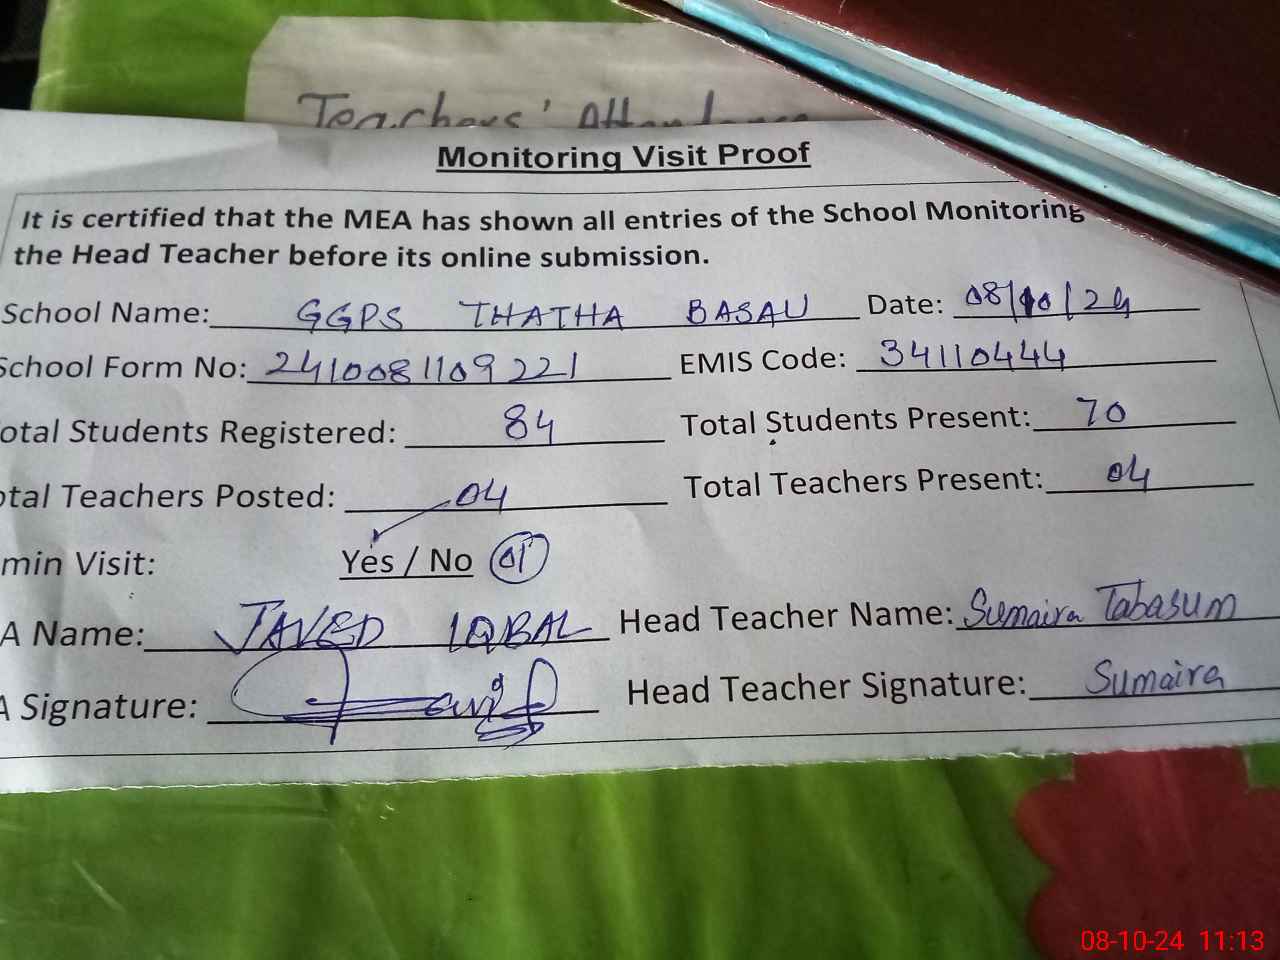 Teachers' Attendance
Monitoring Visit Proof
It is certified that the MEA has shown all entries of the School Monitoring
the Head Teacher before its online submission.
School Name: GGPS THATHA BASAU Date: 08/10/24
School Form No: 2410081109221 EMIS Code: 34110444
otal Students Registered: 84 Total Students Present: 70
otal Teachers Posted: 04 Total Teachers Present: 04
min Visit: Yes / No 01
A Name: JAVED IQBAL Head Teacher Name: Sumaira Tabasum
A Signature: Head Teacher Signature: Sumaira
08-10-24 11:13